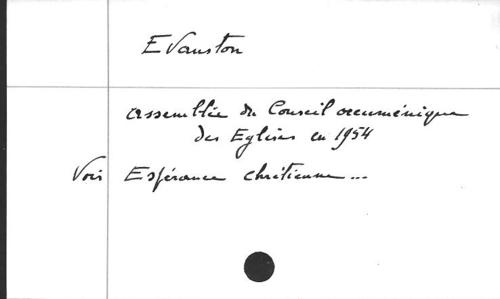 Evanston
Assemblée du Conseil œcuménique
des Eglises en 1954
Voir Espérance chrétienne...